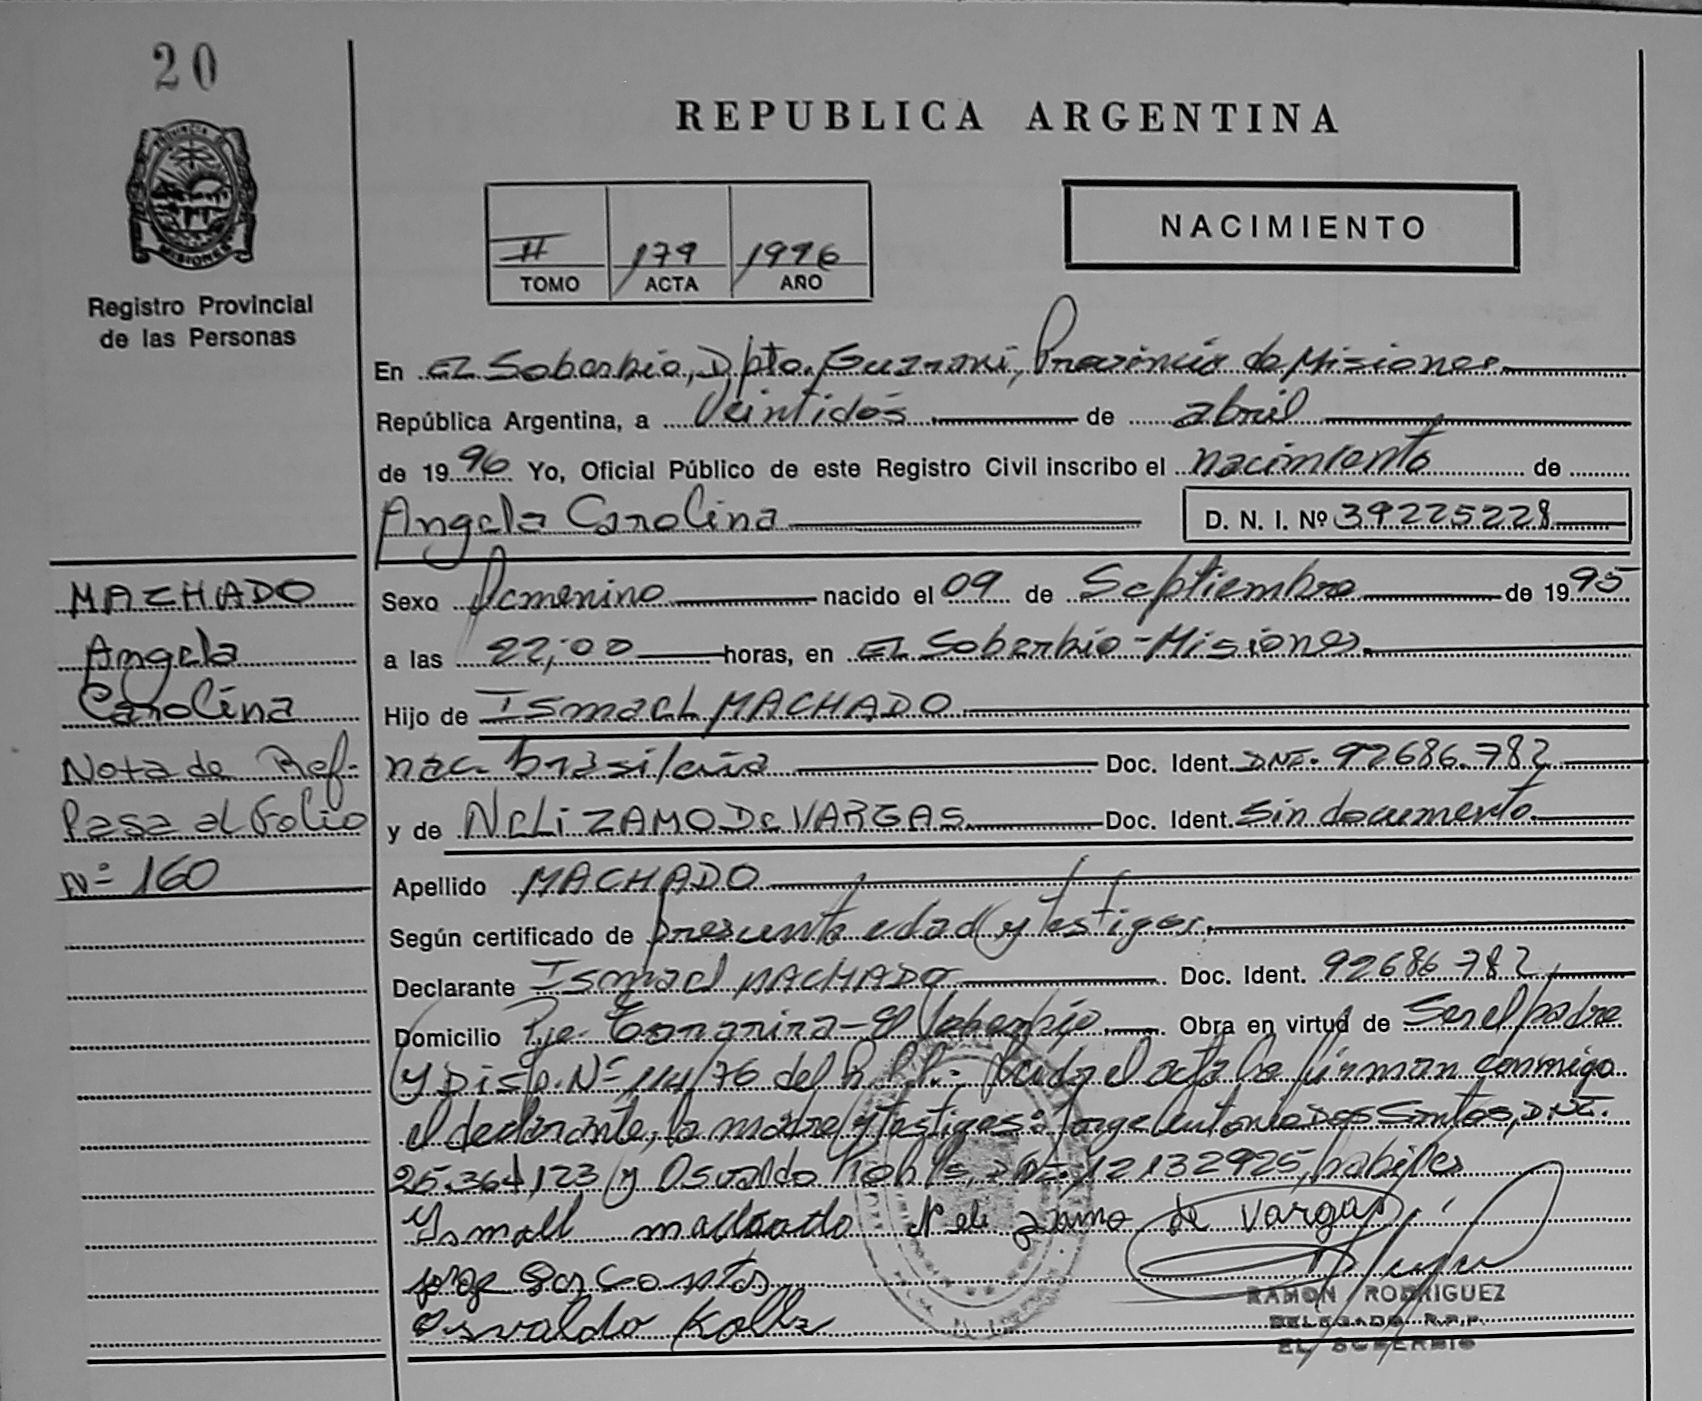 20
PROVINCIA DE
MISIONES
Registro Provincial
de las Personas
REPUBLICA ARGENTINA
II 179 1996
TOMO ACTA AÑO
NACIMIENTO
En El Soberbio, Dpto. Guarani, Provincia de Misiones
República Argentina, a Veintidós de abril
de 1996 Yo, Oficial Público de este Registro Civil inscribo el nacimiento de
Angela Carolina D. N. I. Nº 39225228
MACHADO
Angela
Carolina
Nota de Ref.
Pasa al Folio
Nº 160
Sexo femenino nacido el 09 de Septiembre de 1995
a las 22,00 horas, en El Soberbio-Misiones
Hijo de Ismael MACHADO
nac. brasileña Doc. Ident. DNI. 92686.782
y de Neli ZAMO De VARGAS Doc. Ident. Sin documento
Apellido MACHADO
Según certificado de presunta edad y testigos.
Declarante Ismael MACHADO Doc. Ident. 92686782
Domicilio Pje. - El Soberbio Obra en virtud de Ser el padre
y Disp. Nº 114/76 del R.P.P.- Leida el acta la firman conmigo
el declarante, la madre y testigos: Jorge Antonio Dos Santos, DNI.
25.364,123 y Osvaldo DNI. 12132925, habiles
Ysmall machado Neli zamo de Vargas
jorge Dos
Osvaldo
RAMON RODRIGUEZ
DELEGADO R.P.P.
EL SOBERBIO